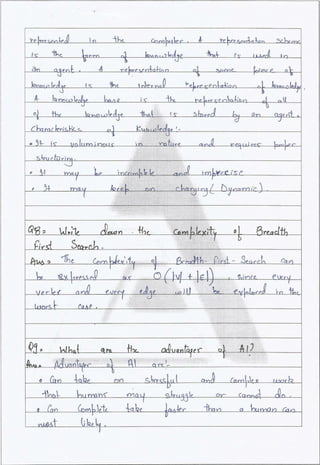 represented in the computer. A representation scheme
is the form of knowledge that is used in
an agent. A representation of some piece of
knowledge is the internal representation of knowledge.
A knowledge base is the representation of all
of the knowledge that is stored by an agent.
Characteristics of Knowledge:-
• It is voluminous in nature and requires proper
structuring.
• It may be incomplete and imprecise
• It may keep on changing ( Dynamic).
Q8= Write down the Complexity of Breadth
first Search.
Ans = The Complexity of Breadth first- Search can
be expressed as O(|V| + |E|), since every
vertex and every edge will be explored in the
worst case.
Q9. What are the advantages of AI?
Ans= Advantages of AI are:-
• Can take on stressful and complex work
that humans may struggle or cannot do.
• Can Complete take faster than a human can
most likely.